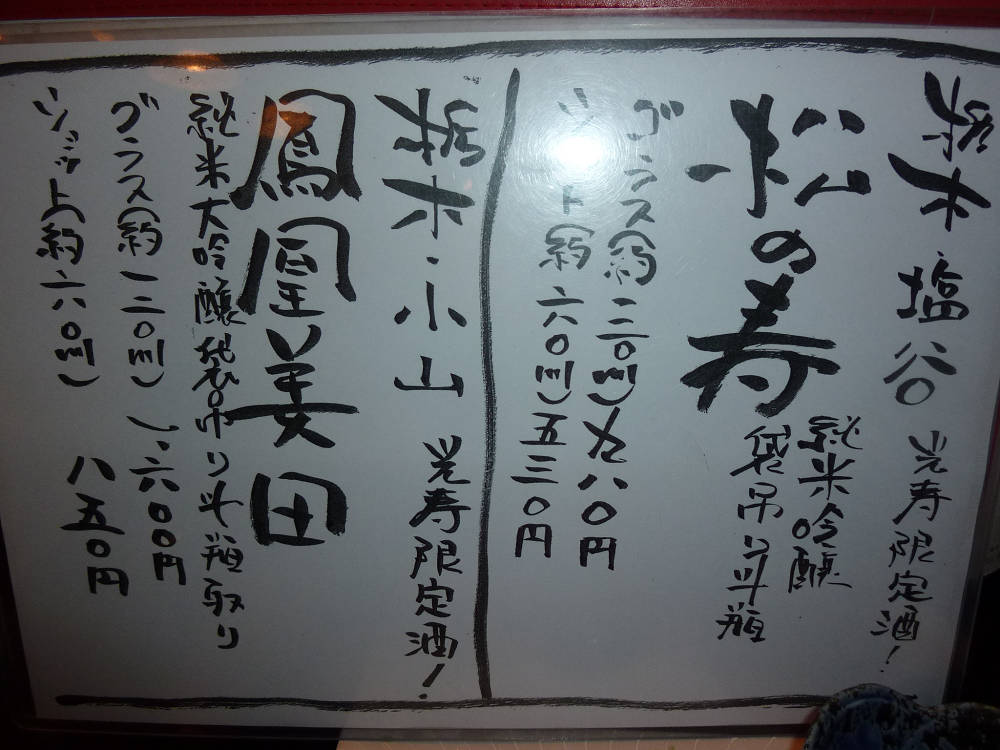 栃木 塩谷 光寿限定酒!
松の寿
純米吟醸
袋吊り斗瓶
グラス(約一二〇ml) 九八〇円
ショット(約六〇ml) 五三〇円
栃木・小山 光寿限定酒!
鳳凰美田
純米大吟醸袋吊り斗瓶取り
グラス(約一二〇ml) 一、六〇〇円
ショット(約六〇ml) 八五〇円